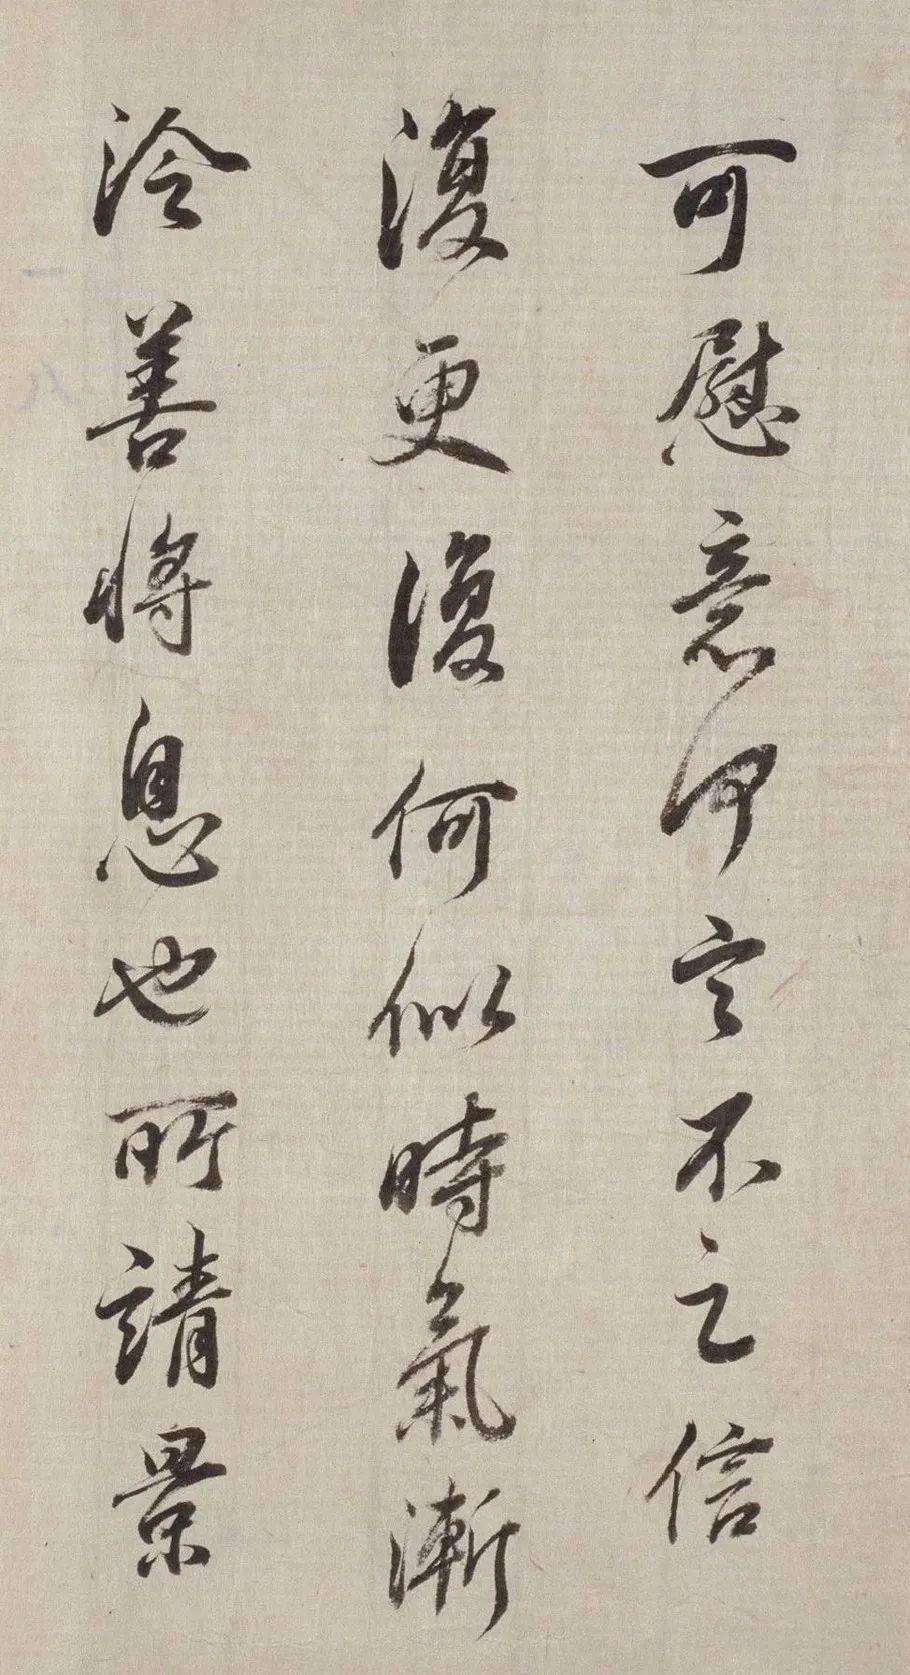 可慰意何定不之信
復更復何似時氣漸
冷善將息也所請景